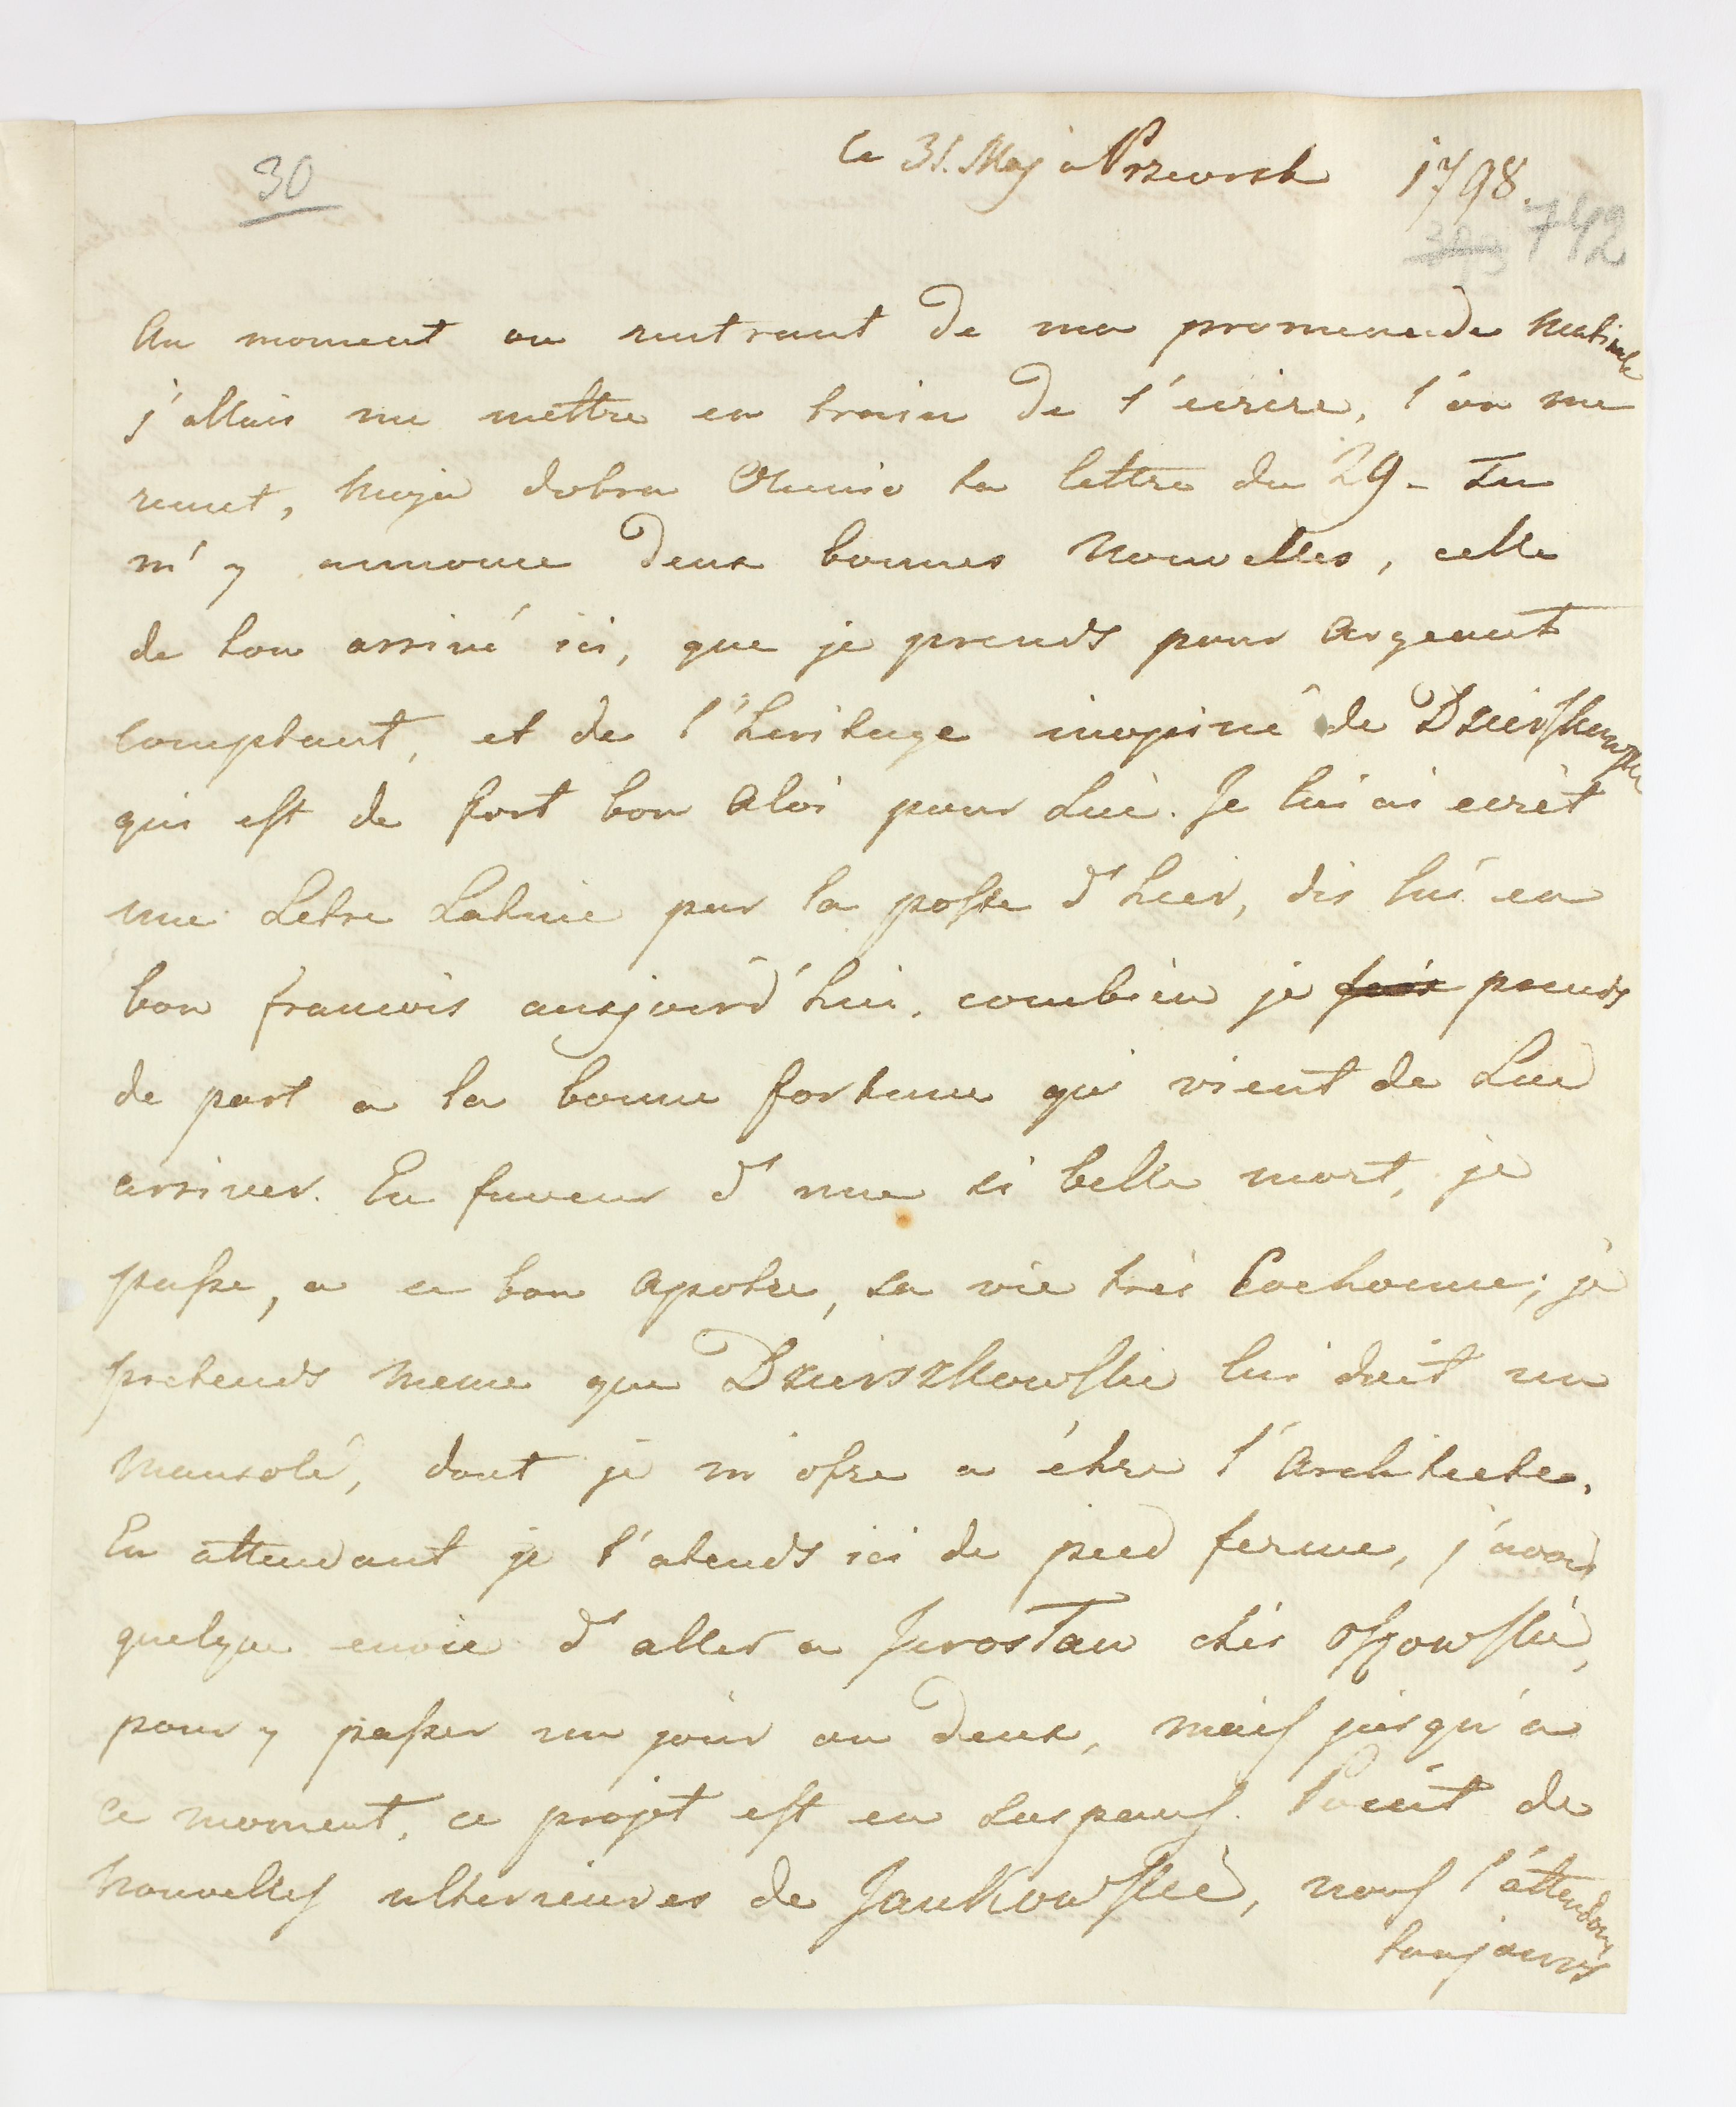 30
Ce 31. May a Przeworsk 1798.
742
Au moment ou rentrant de ma promenade Matinale
j'allais me mettre en train de t'ecrire, l'on me
remet, Moja dobra Olunio ta lettre du 29 - Tu
m'y annonce deux bonnes Nouvelles, celle
de ton arrivé ici, que je prends pour argent
comptant, et de l'heritage inopiné de
qui est de fort bon aloi pour Lui. Je lui ai ecrit
une Letre Latine par la poste d'hier, dis lui en
bon francois aujourd'hui, combien je prends
de part a la bonne fortune qui vient de Lui
arriver. En faveur d'une si belle mort, je
passe, a ce bon Apotre, sa vie très Cochonne; je
pretends meme que DzierszKowski lui doit un
Mausolé, dont je m'ofre a être l'Architecte.
En attendant je t'atends ici de pied ferme, j'avais
quelque envie d'aller a JarosTau chés
pour y passer un jour ou deux, mais jusqu'a
ce moment, ce projet est en suspens. Point de
Nouvelles ulterieures de JanKowski, nous l'áttendons
toujours